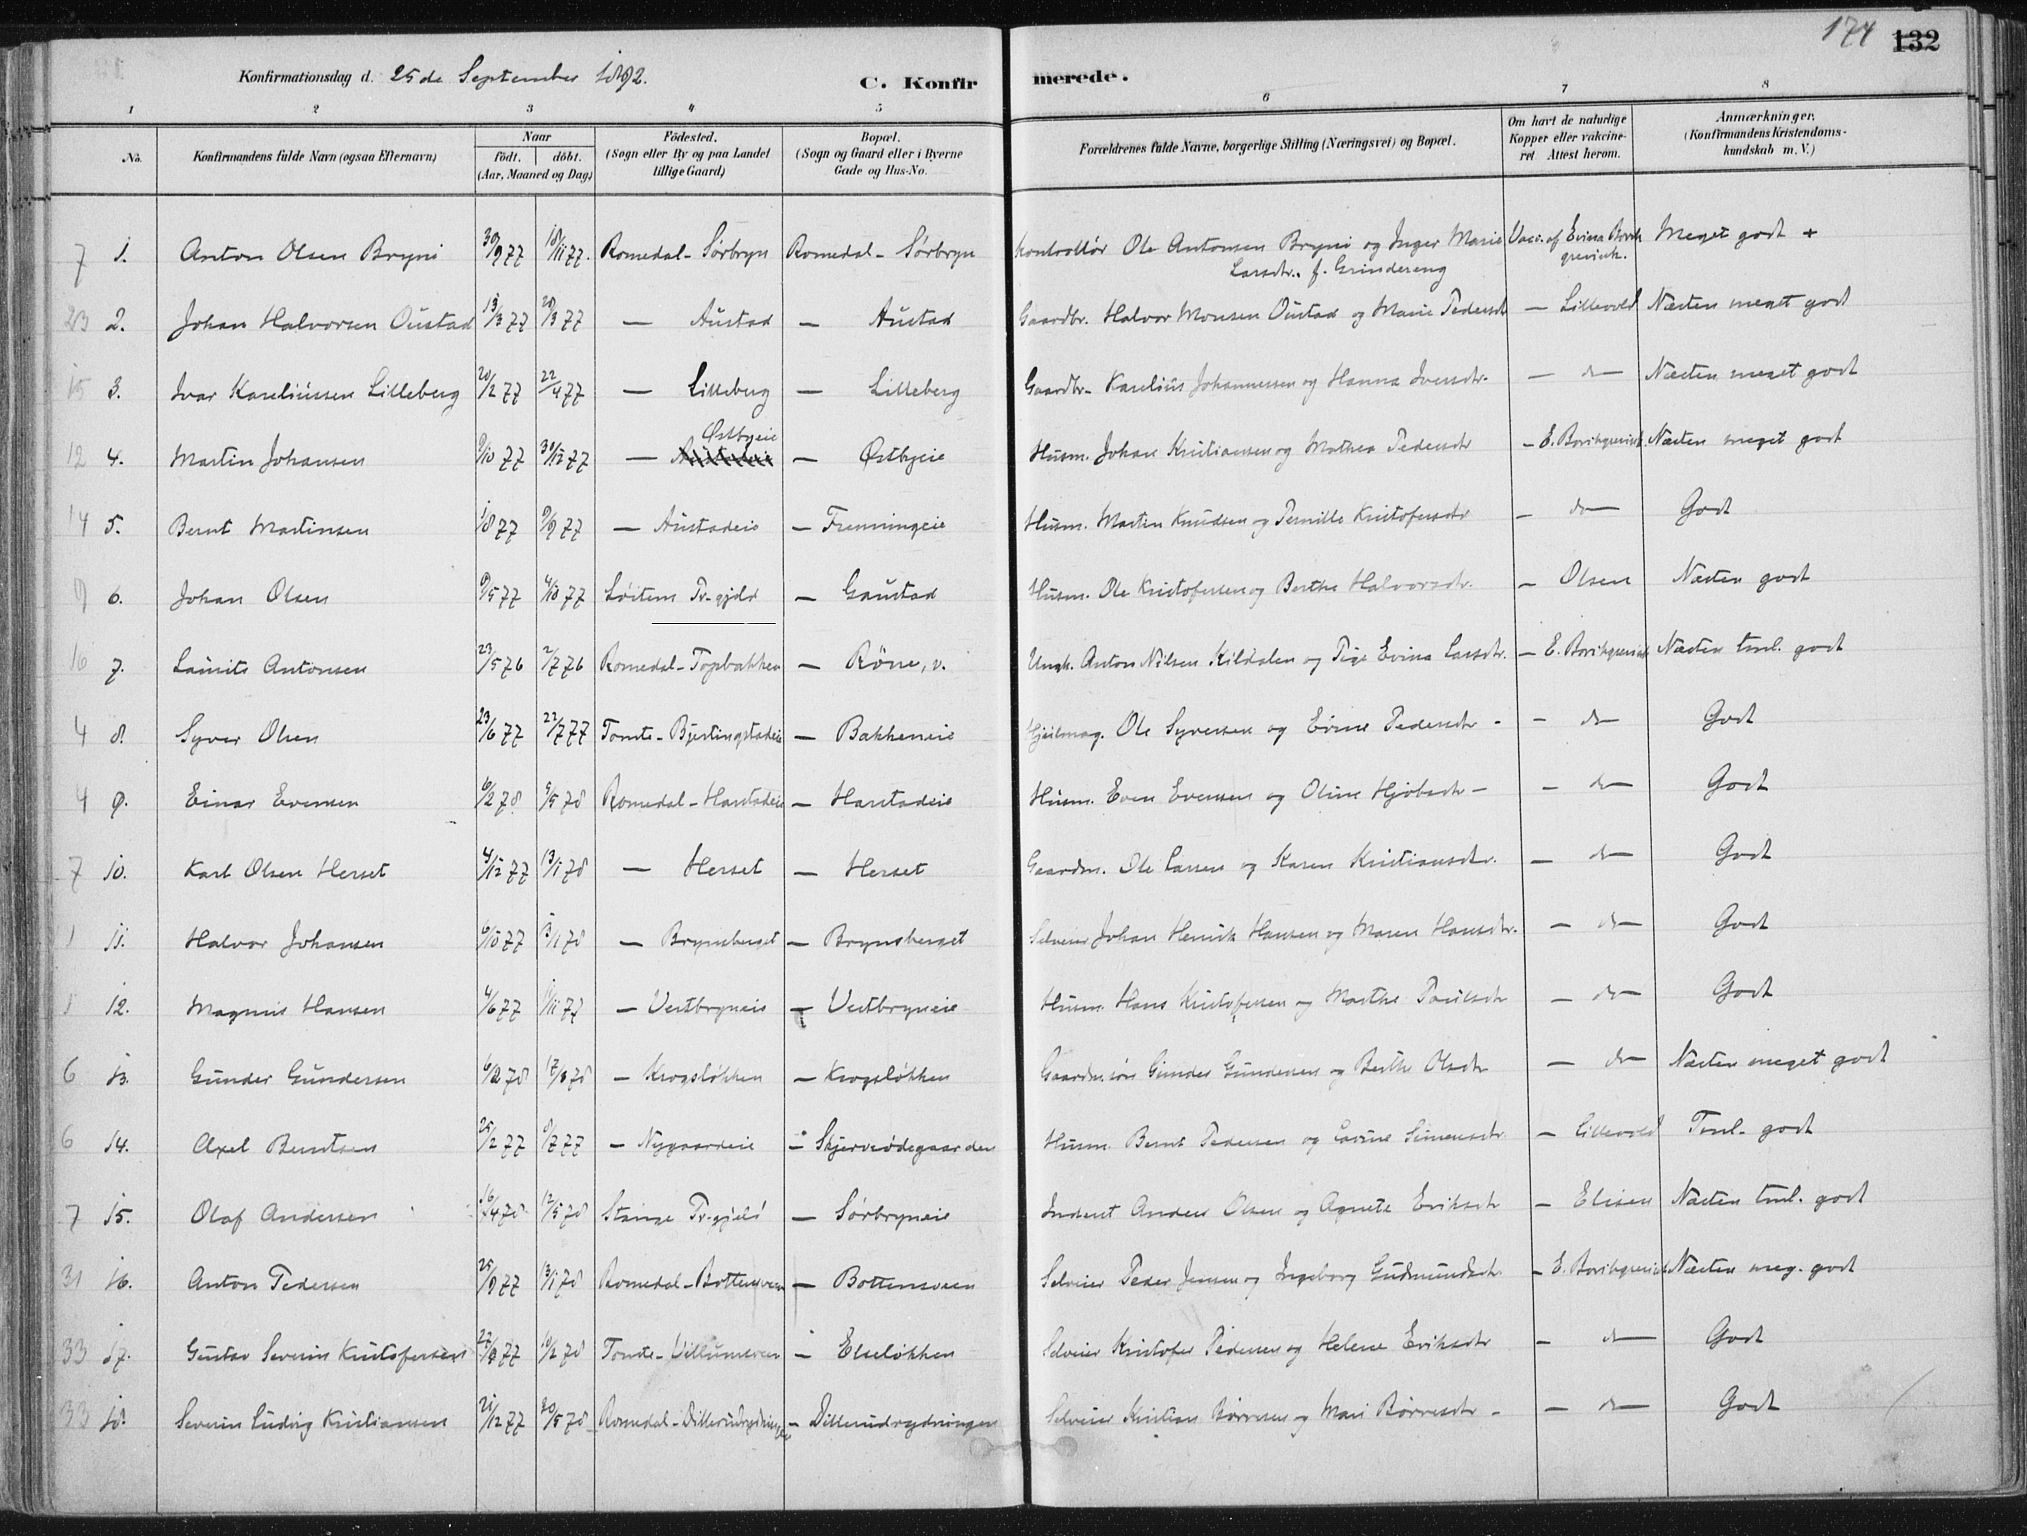 174 132
Konfirmationsdag d. 25de September 1892. C. Konfir merede.
1 2 3 4 5 6 7 8
No. Konfirmandens fulde Navn (ogsaa Efternavn) Naar födt. döbt. (Aar, Maaned og Dag) Födested. (Sogn eller By og paa Landet tillige Gaard) Bopæl. (Sogn og Gaard eller i Byerne Gade og Hus-No. Forældrenes fulde Navne, borgerlige Stilling (Næringsvei) og Bopæl. Om havt de naturlige Kopper eller vakcineret. Attest herom. Anmærkninger. (Konfirmandens Kristendomskundskab m. V.)
7 1. Anton Olsen Bryni 30/9 77 18/11 77. Romedal - Sørbryn Romedal - Sørbryn Kontrollør Ole Antonsen Bryni og Inger Marie Larsdtr. f. Grindereng Vacc. af Evina Meget godt +
23 2. Johan Halvorsen Oustad 13/3 77 28/3 77 — Austad — Austad Gaardbr. Halvor Monsen Oustad og Marie Pedersdtr — Lillevold Næsten meget godt
15 3. Ivar Kareliussen Lilleberg 20/2 77 22/4 77 — Lilleberg — Lilleberg Gaardbr. Karelius Johannessen og Hanna Iversdtr. — do — Næsten meget godt
12 4. Martin Johansen 9/10 77 30/12 77 — Østbyeie — Østbyeie Husm. Johan Kristiansen og Mathea Pedersdtr — E. Næsten meget godt
14 5. Bernt Martinsen 1/8 77 9/9 77 — Austadeie — Frenningeie Husm. Martin Knudsen og Pernille Kristofersdtr — do — Godt
9 6. Johan Olsen 9/5 77 4/10 77 Løiten Pr-gjeld — Gaustad Husm. Ole Kristofersen og Berthe Halvorsdtr. — Olsen Næsten godt
16 7. Lauits Antonsen 23/5 76 2/7 76 Romedal - Topbakken — Röne, v. Ungk. Anton Nilsen Kildalen og Pige Evina Larsdtr. — E. Næsten tml. godt
4 8. Syver Olsen 23/6 77 22/7 77 Tomte - Bjertingstadeie — Bakkeneie Ole Syversen og Evine Pedersdtr - — do — Godt
4 9. Einar Evensen 6/2 78 5/5 78 Romedal - Harstadeie — Harstadeie Husm. Even Evensen og Oline - — do — Godt
7 10. Karl Olsen Herset 4/12 77 13/1 78 — Herset — Herset Gaardm. Ole Larsen og Karen Kristiansdtr. — do — Godt
1 11. Halvor Johansen 6/10 77 /1 78 — Brynsberget — Brynsberget Selveier Johan Henrik Hansen og Maren Hansdtr. — do — Godt
1 12. Magnus Hansen 4/6 77 /11 77 — Vestbryneie — Vestbryneie Husm. Hans Kristofersen og Marthe Paulsdtr — do — Godt
6 13. Gunder Gundersen 6/2 78 17/ 78 — Krogsløkken — Krogsløkken Gaardm.søn Gunder Gundersen og Berthe Olsdtr — do — Næsten meget godt
6 14. Axel Berntsen 25/2 77 9/7 77 — Nygaardeie — Skjerveødegaarden Husm. Bernt Pedersen og Lovine Simensdtr — Lillevold Tml. godt
7 15. Olaf Andersen 16/4 78 12/5 78 Stange Pr-gjeld — Sørbryneie Inderst Anders Olsen og Agnete Eriksdtr — Elisen Næsten tml. godt
31 16. Anton Pedersen 25/9 77 13/1 78 Romedal - Bottensveen — Bottensveen Selveier Peder Jensen og Ingeborg Gudmundsdtr — E. Næsten meg. godt
33 17. Gustav Severin Kristofersen 77 10/2 78 Tomte - Villumsveen — Elseløkken Selveier Kristofer Pedersen og Helene Eriksdtr — do — Godt
33 18. Severin Ludvig Kristiansen 21/12 77 20/5 78 Romedal - Dillerudrydningen — Dillerudrydningen Selveier Kristian Børresen og Mari Børresdtr - — do — Godt